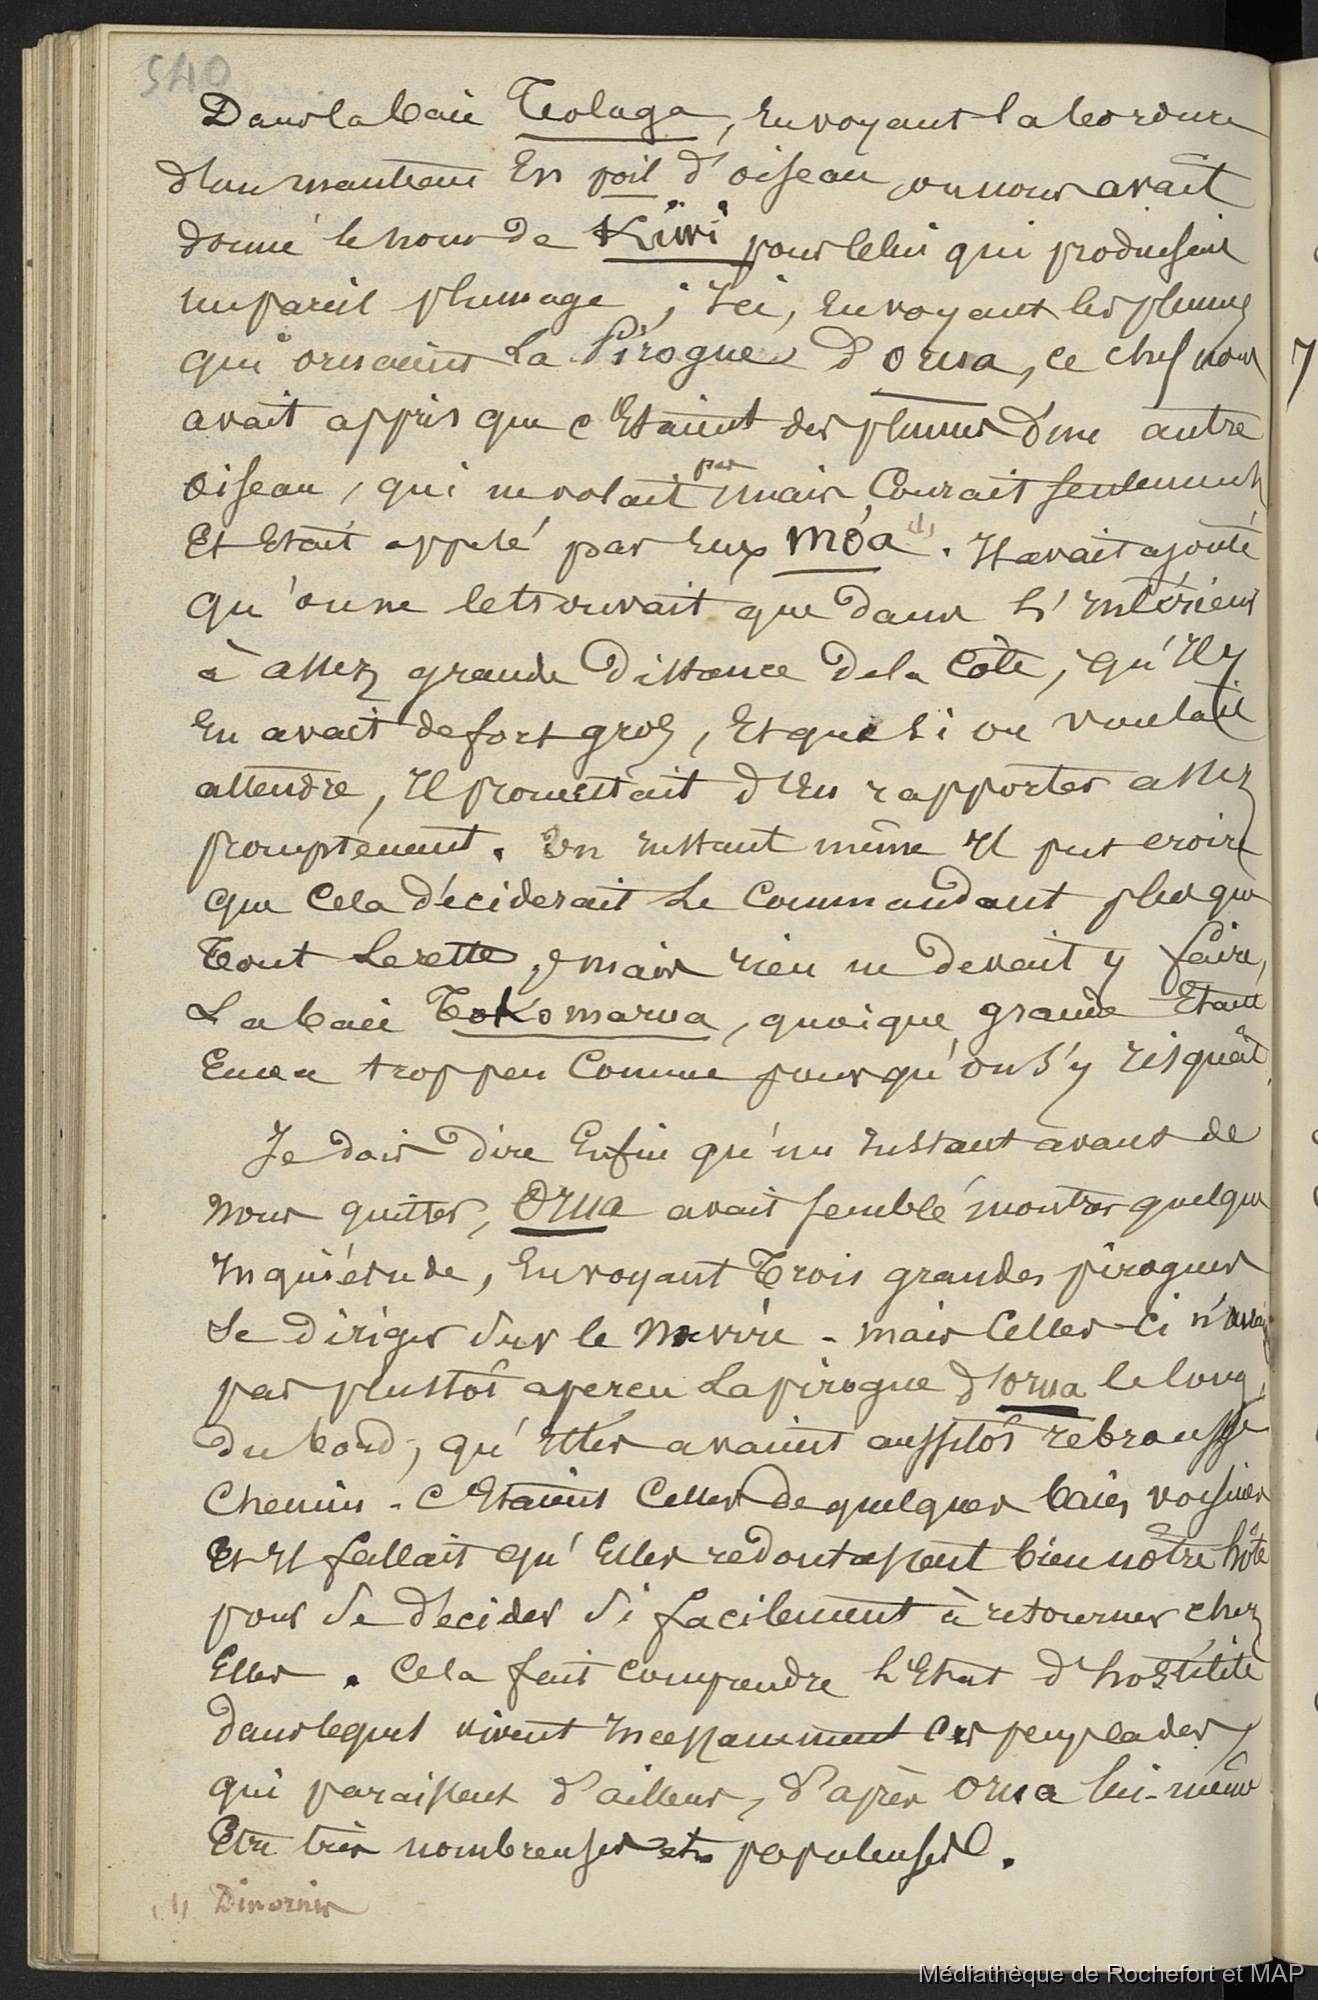 540
Dans la baie Tolaga, En voyant la bordure
d'un manteau En poil d'oiseau on nous avait
donné le nom de Kiwi pour Celui qui produisait
un pareil plumage ; Ici, En voyant les plumes
qui ornaient La Pirogue d'Orua, ce chef nous
avait appris que c'Etaient des plumes d'un autre
oiseau, qui ne volait pas mais Courait seulement
Et Etait appelé par Eux Móa (1). Il avait ajouté
qu'on ne le trouvait que dans l'Intérieur
à assez grande Distance de la Côte, qu'Il y
En avait de fort gros, Et que si on voulait
attendre, Il promettait d'En rapporter assez
promptement. Un Instant même Il put croire
que Cela déciderait Le Commandant plus que
Tout Le reste, mais rien ne devait y faire,
La baie Tokomarua, quoique grande Etant
Encore trop peu Connue pour qu'on s'y risquât.
Je dois Dire Enfin qu'un Instant avant de
nous quitter, Orua avait semblé montrer quelque
Inquiétude, En voyant Trois grandes pirogues
Se Diriger Sur le Navire - mais Celles-Ci n'avaient
pas plustôt aperçu La pirogue d'Orua le long
du bord, qu'Elles avaient aussitôt rebroussé
Chemin - C'Etaient Celles de quelques baies voisines
Et Il fallait qu'Elles redoutassent bien notre hôte
pour Se décider Si facilement à retourner chez
Elles. Cela fait comprendre l'Etat d'hostilité
dans lequel vivent Incessamment Ces peuplades,
qui paraissent d'ailleurs, d'après Orua lui-même
Etre très nombreuses et populeuses.
(1) Dinornis
Médiathèque de Rochefort et MAP